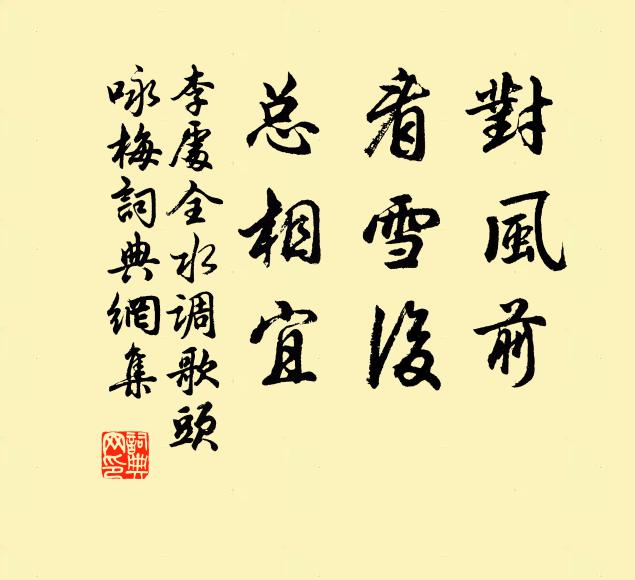 對風前
看雪後
总相宜
李處全水调歌頭
咏梅詞典網集
詞典
网印